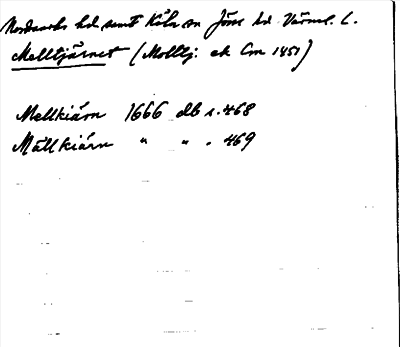 Nordmarks hd samt Köla sn Jösse hd Värml. l.
Melltjärnet (Molltj: ek Cm 1451)
Mellkiärn 1666 db s. 468
Mällkiärn " " . 469